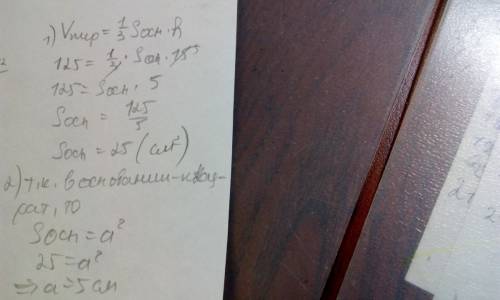 1) Vпир = 1/3 Sосн · h
125 = 1/3 · Sосн · 15 5
125 = Sосн · 5
Sосн = 125/5
Sосн = 25 (см²)
2) т.к. в основании - квад-
рат, то
Sосн = a²
25 = a²
⇒ a = 5 см
21
2